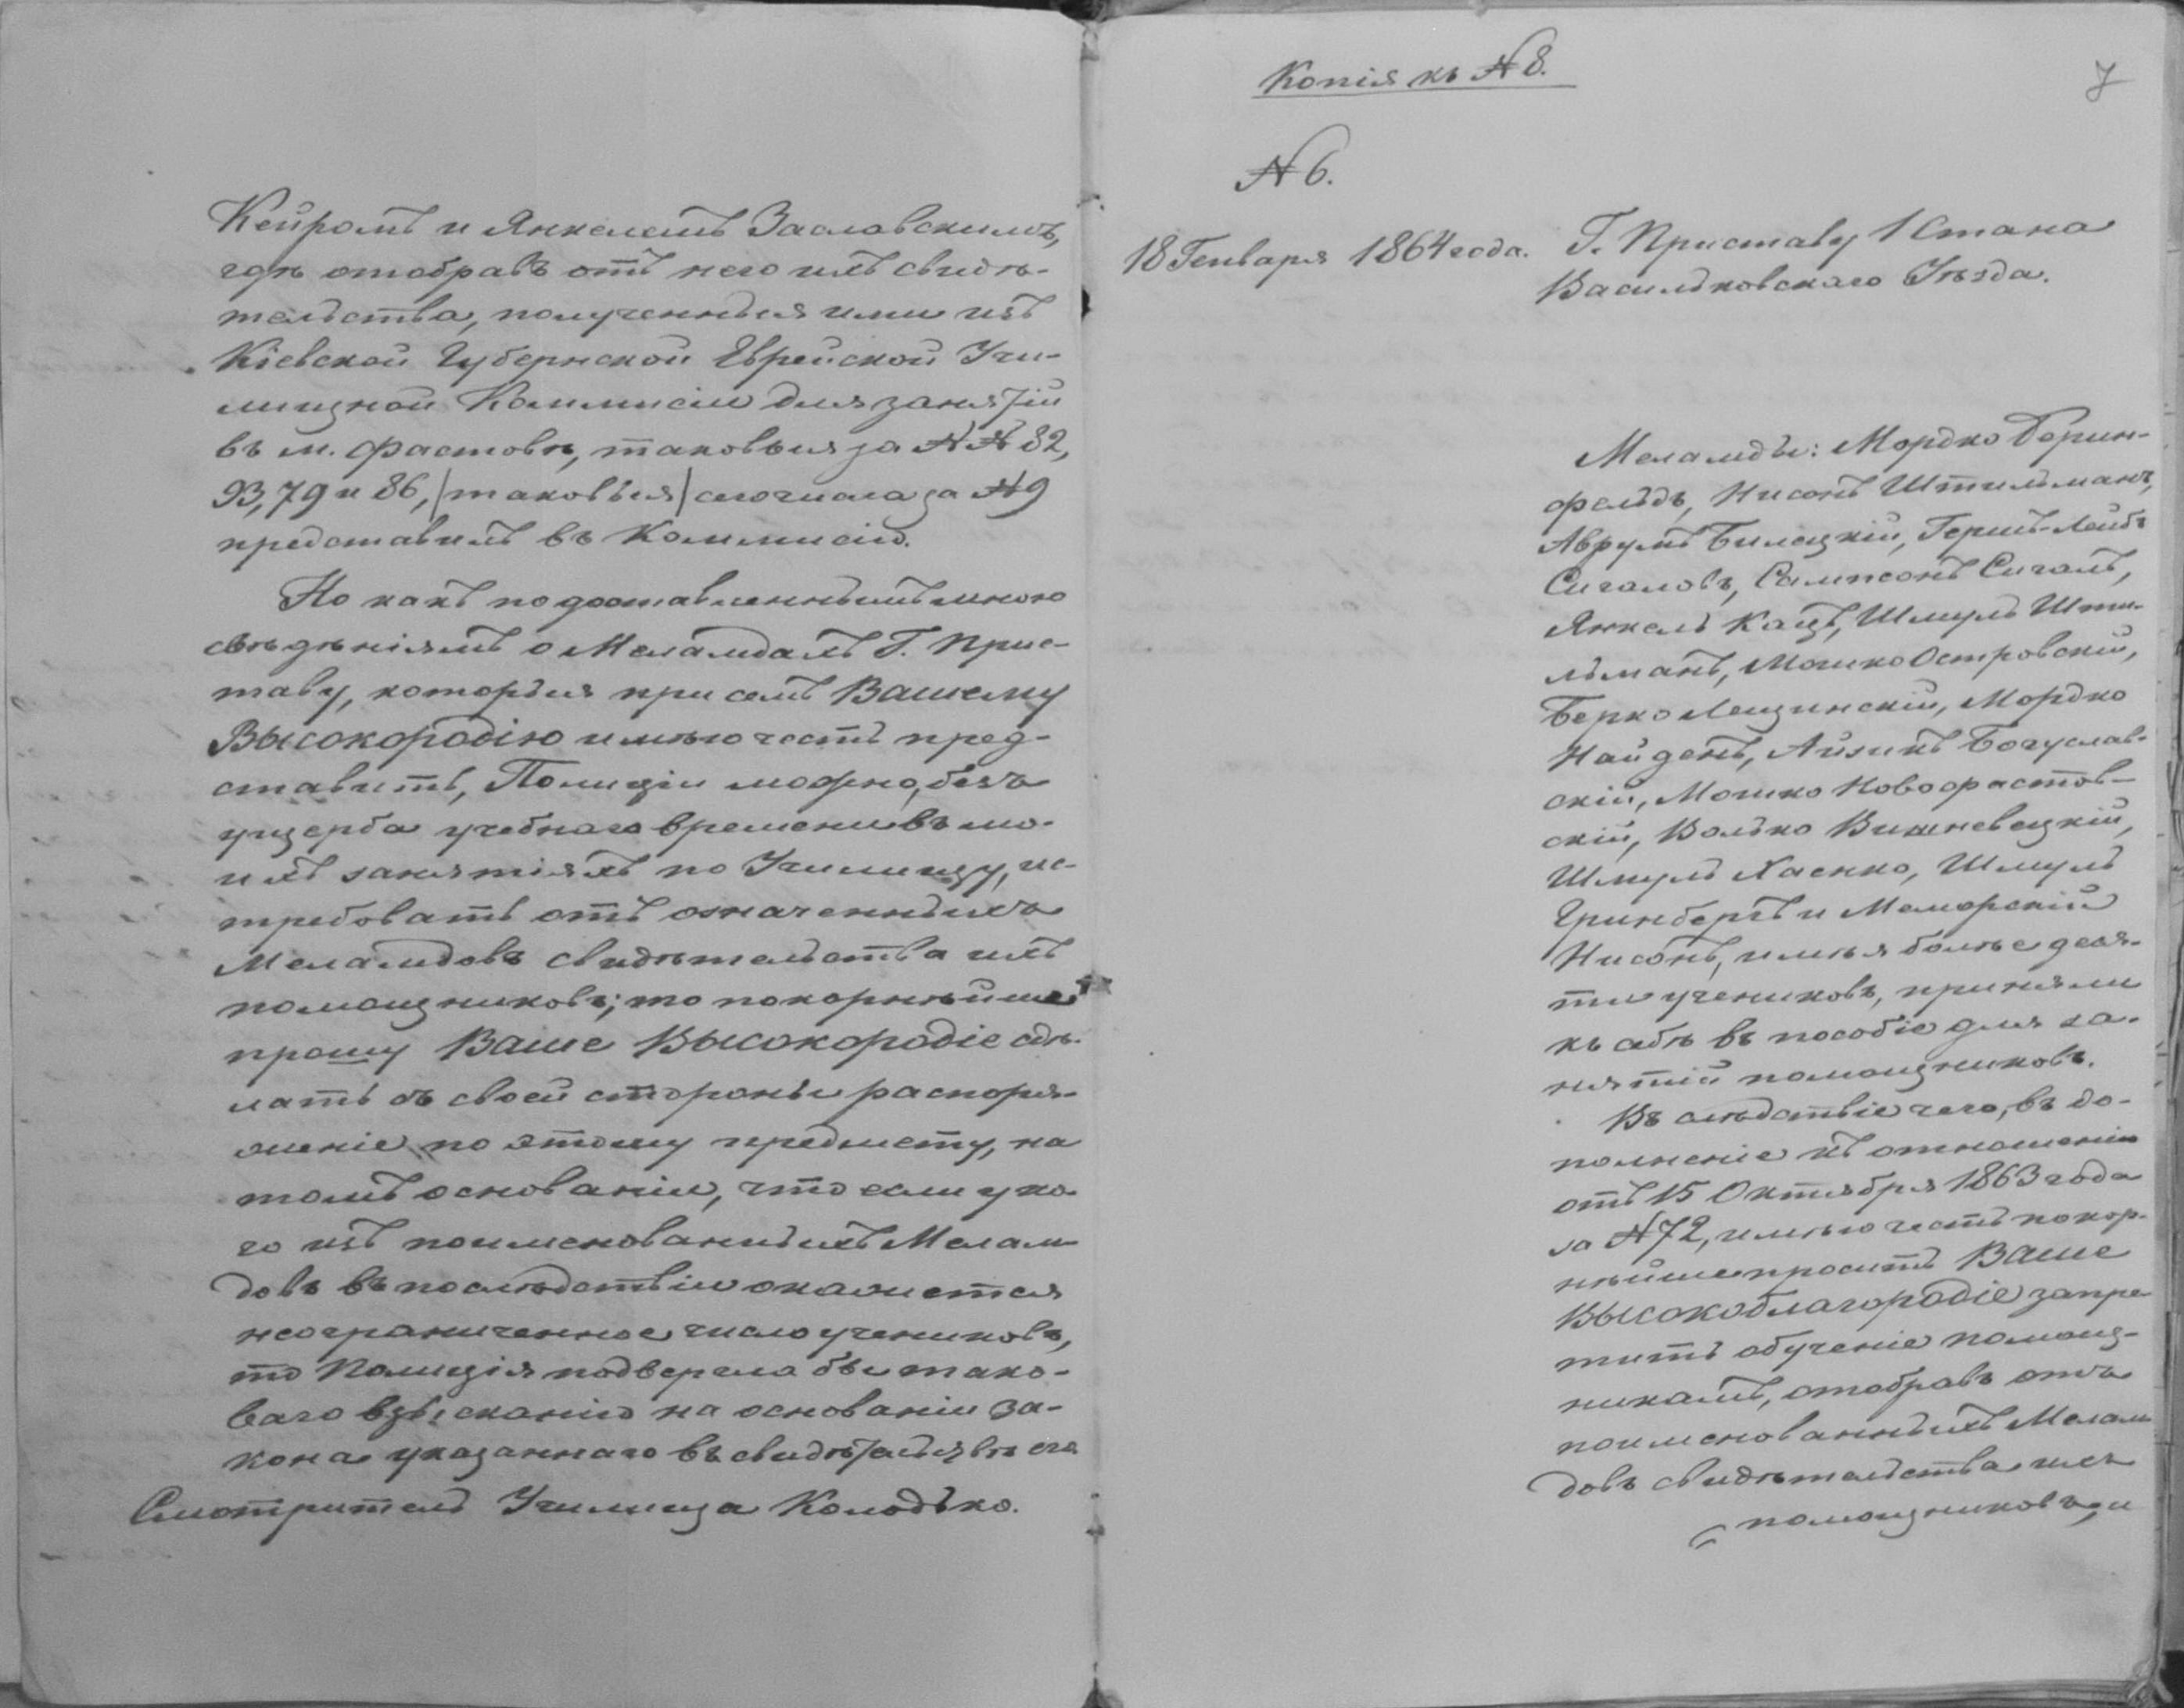 Кейромъ и Янкелемъ Заславскимъ,
гдѣ отобравъ отъ него ихъ свидѣ-
тельства, полученныя ими изъ
Кіевской Губернской Еврейской Учи-
лищной Коммисіи для занятій
въ м. Фастовѣ, таковыя за №№ 82,
93, 79 и 86, /таковыя/ сего числа за № 9
представилъ въ Коммисію.
Но какъ по доставленнымъ мною
свѣдѣніямъ о Меламдахъ Г. Прис-
таву, которыя при семъ Вашему
Высокородію имѣю честь пред-
ставить, Полиціи можно, безъ
ущерба учебнаго времени въ мо-
ихъ занятіяхъ по Училищу, ис-
требовать отъ означенныхъ
Меламдовъ свидѣтельства ихъ
помощниковъ; то покорнѣйше
прошу Ваше Высокородіе сдѣ-
лать съ своей стороны распоря-
женіе по этому предмету, на
томъ основаніи, что если у ко-
го изъ поименованныхъ Мелам-
довъ въ послѣдствіи окажется
неограниченное число учениковъ,
то Полиція подвергла бы тако-
ваго взысканію на основаніи за-
кона указаннаго въ свидѣтельствѣ его
Смотритель Училища Колодько.
Копія къ № 8.
7
№ 6.
18 Генваря 1864 года.
Г. Приставу 1 Стана
Васильковскаго Уѣзда.
Меламды: Мордко Берин-
фельдъ, Нисонъ Штильманъ,
Аврумъ Билецкій, Гершъ-Лейбъ
Сигаловъ, Сампсонъ Сигалъ,
Янкель Кацъ, Шмуль Шти-
льманъ, Мошко Островскій,
Берко Лещинскій, Мордко
Найденъ, Айзикъ Богуслав-
скій, Мошко Новофастов-
скій, Волько Вишневецкій,
Шмуль Хаенко, Шмуль
Гринбергъ и Меморскій
Нисонъ, имѣя болѣе деся-
ти учениковъ, приняли
къ себѣ въ пособіе для за-
нятій помощниковъ.
Въ слѣдствіе чего, въ до-
полненіе къ отношенію
отъ 15 Октября 1863 года
за № 72, имѣю честь покор-
нѣйше просить Ваше
Высокоблагородіе запре-
тить обученіе помощ-
никамъ, отобравъ отъ
поименованныхъ Мелам-
довъ свидѣтельства ихъ
помощниковъ, и